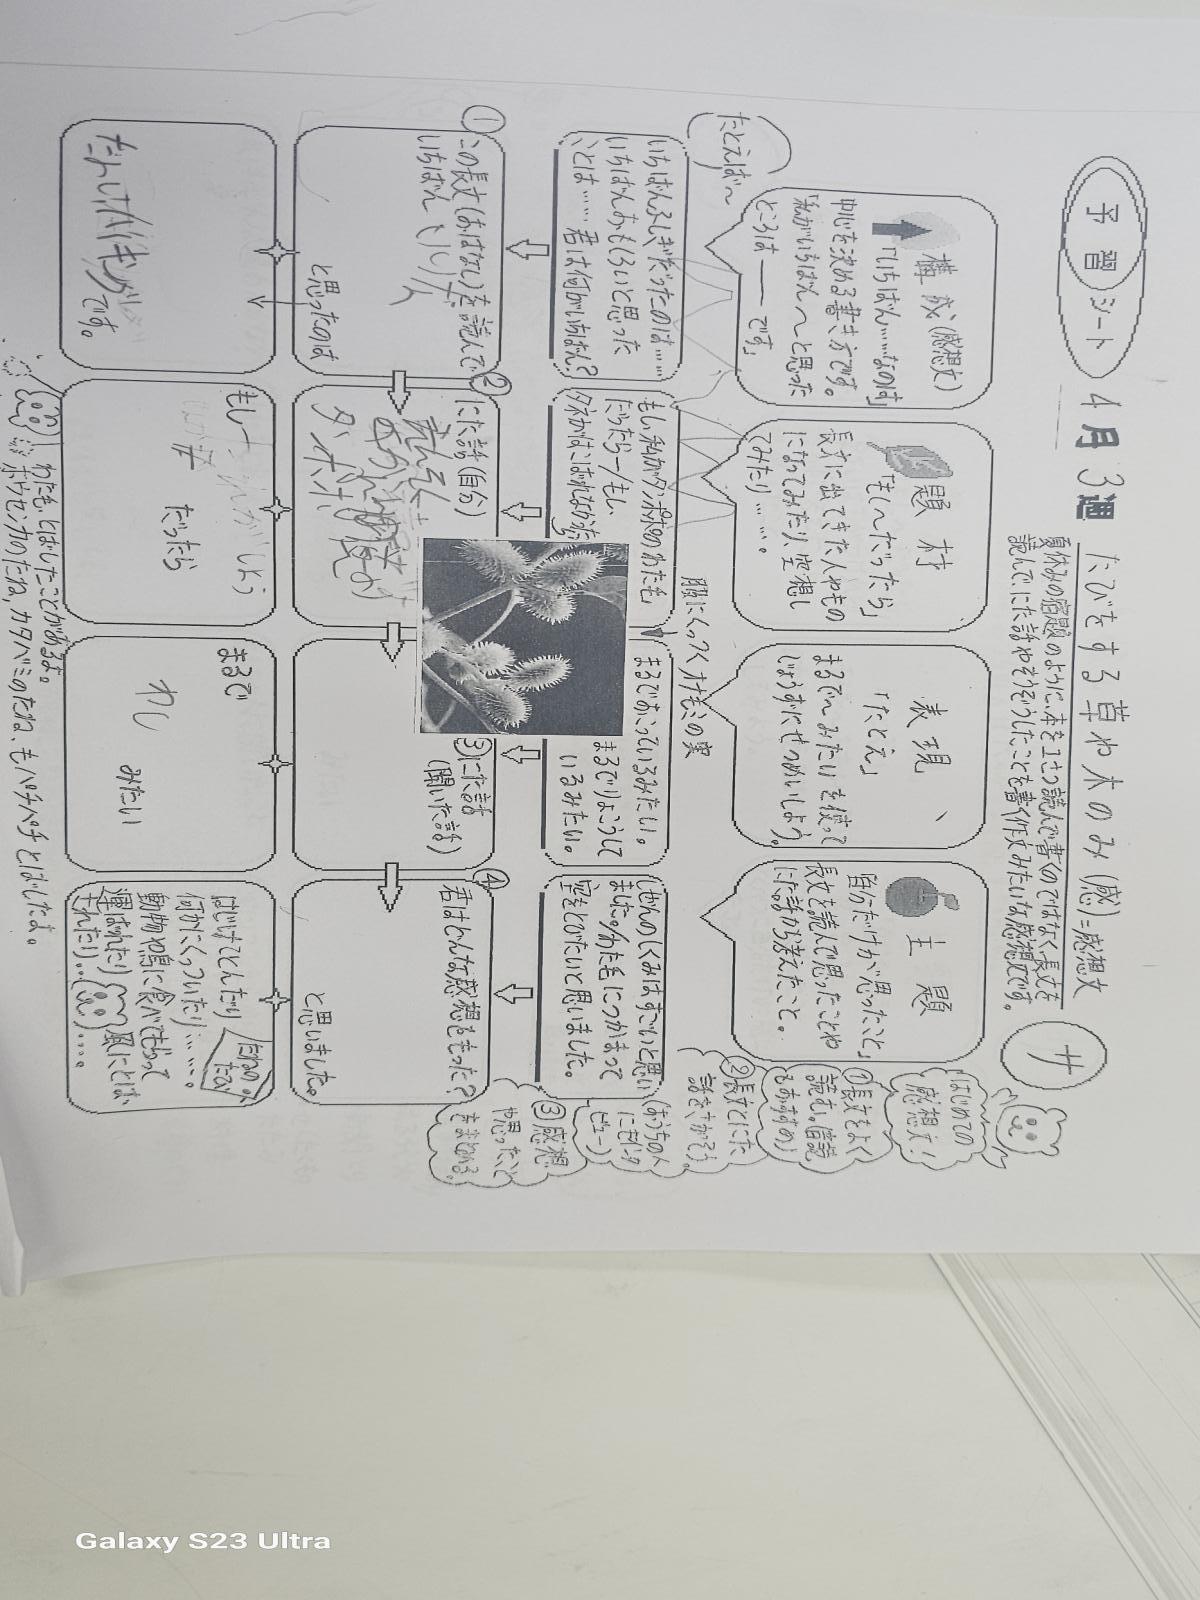 予習シート
4月3週
たびをする草や木のみ(感)=感想文
夏休みの宿題のように、本を1さつ読んで書くのではなく、長文を
読んで、にた話やそうぞうしたことを書く作文みたいな感想文です。
サ
はじめての
感想文!
①長文をよく
読む。(音読
もおすすめ)
②長文とにた
話をさがそう。
(おうちの人
にもインタ
ビュー)
③感想
や思ったこと
をまとめる。
構成(感想文)
「いちばん……なのは」
中心を決める書き方です。
「私がいちばん〜と思った
ところは――です」
題材
「もし〜だったら」
長文に出てきた人やもの
になってみたり、空想し
てみたり……。
表現
「たとえ」
まるで〜みたいを使って
じょうずにせつめいしよう。
主題
「自分だけが思ったこと」
長文を読んで思ったことや
にた話から考えたこと。
たとえば〜
服にくっつくオナモミの実
いちばんふしぎだったのは……
いちばんおもしろいと思った
ことは……君は何がいちばん?
もし、私がタンポポのわた毛
だったら―/もし、
タネがはこばれなかったら
まるでおこっているみたい。
まるでりょこうして
いるみたい。
しぜんのしくみはすごいと思い
ました。/わた毛につかまって
空をとびたいと思いました。
①この長文(おはなし)を読んで
いちばん
と思ったのは
②にた話(自分)
タンポポ
③にた話
(聞いた話)
④君はどんな感想をもった?
と思いました。
です。
もし
だったら
まるで
みたい
はじけてとんだり
何かにくっついたり……。
動物や鳥に食べてもらって
運ばれたり
風にとばさ
れたり……。
たねの
たび
わた毛、とばしたことがあるよ。
ホウセンカのたね、カタバミのたね、もパチパチとばしたよ。
Galaxy S23 Ultra